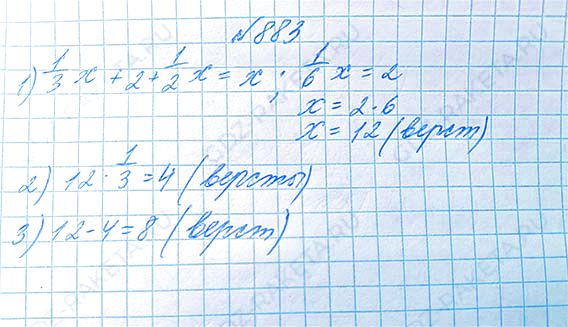 №883
1) 1/3 x + 2 + 1/2 x = x ; 1/6 x = 2
x = 2·6
x = 12 (верст)
2) 12 · 1/3 = 4 (версты)
3) 12 - 4 = 8 (верст)